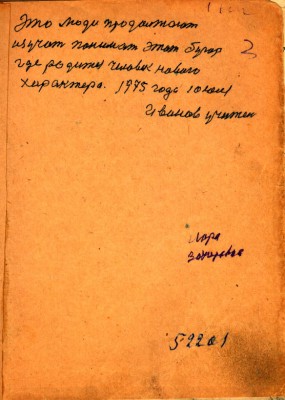 Это люди продолжают
изучат понимат этот бугор
где родится человек нового
характера. 1975 года 10 юля
Иванов учител
3
52201